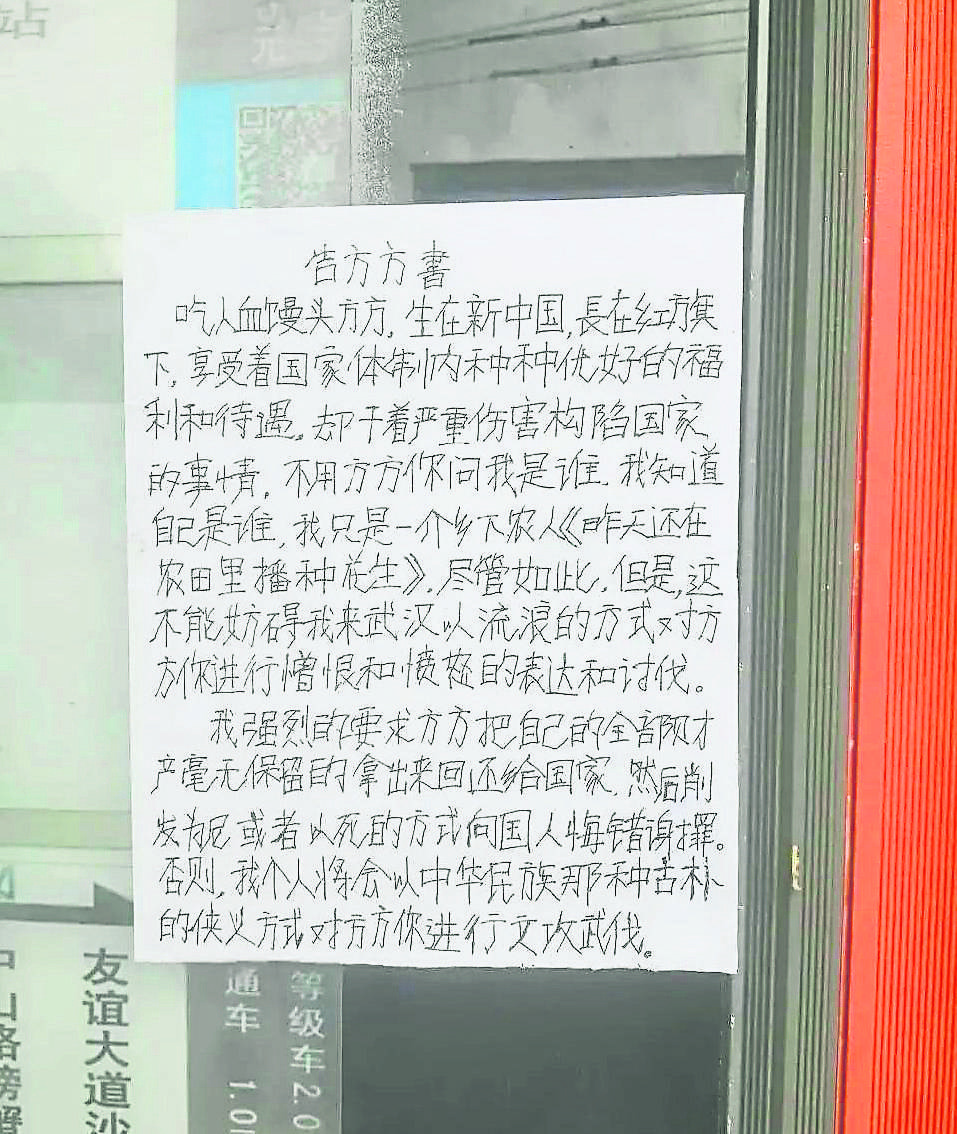 站
告方方書
吃人血馒头方方,生在新中国,長在红旗
下,享受着国家体制内种种优好的福
利和待遇。却干着严重伤害构陷国家
的事情。不用方方你问我是谁.我知道
自己是谁,我只是一个乡下农人《昨天还在
农田里播种花生》.尽管如此,但是,这
不能妨碍我来武汉以流浪的方式对方
方你进行憎恨和愤怒的表达和讨伐。
我强烈的要求方方把自己的全部财
产毫无保留的拿出来回还给国家.然后削
发为尼或者以死的方式向国人悔错谢罪。
否则,我个人将会以中华民族那种古朴
的侠义方式对方方你进行文攻武伐。
友谊大道沙
通车 1.0
等级车2.0
中山路